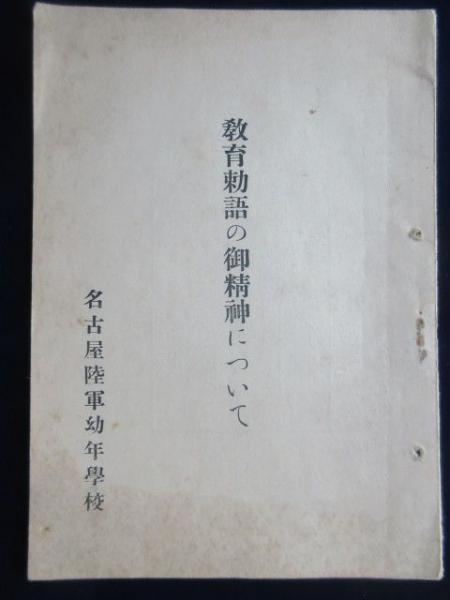 敎育勅語の御精神について
名古屋陸軍幼年學校